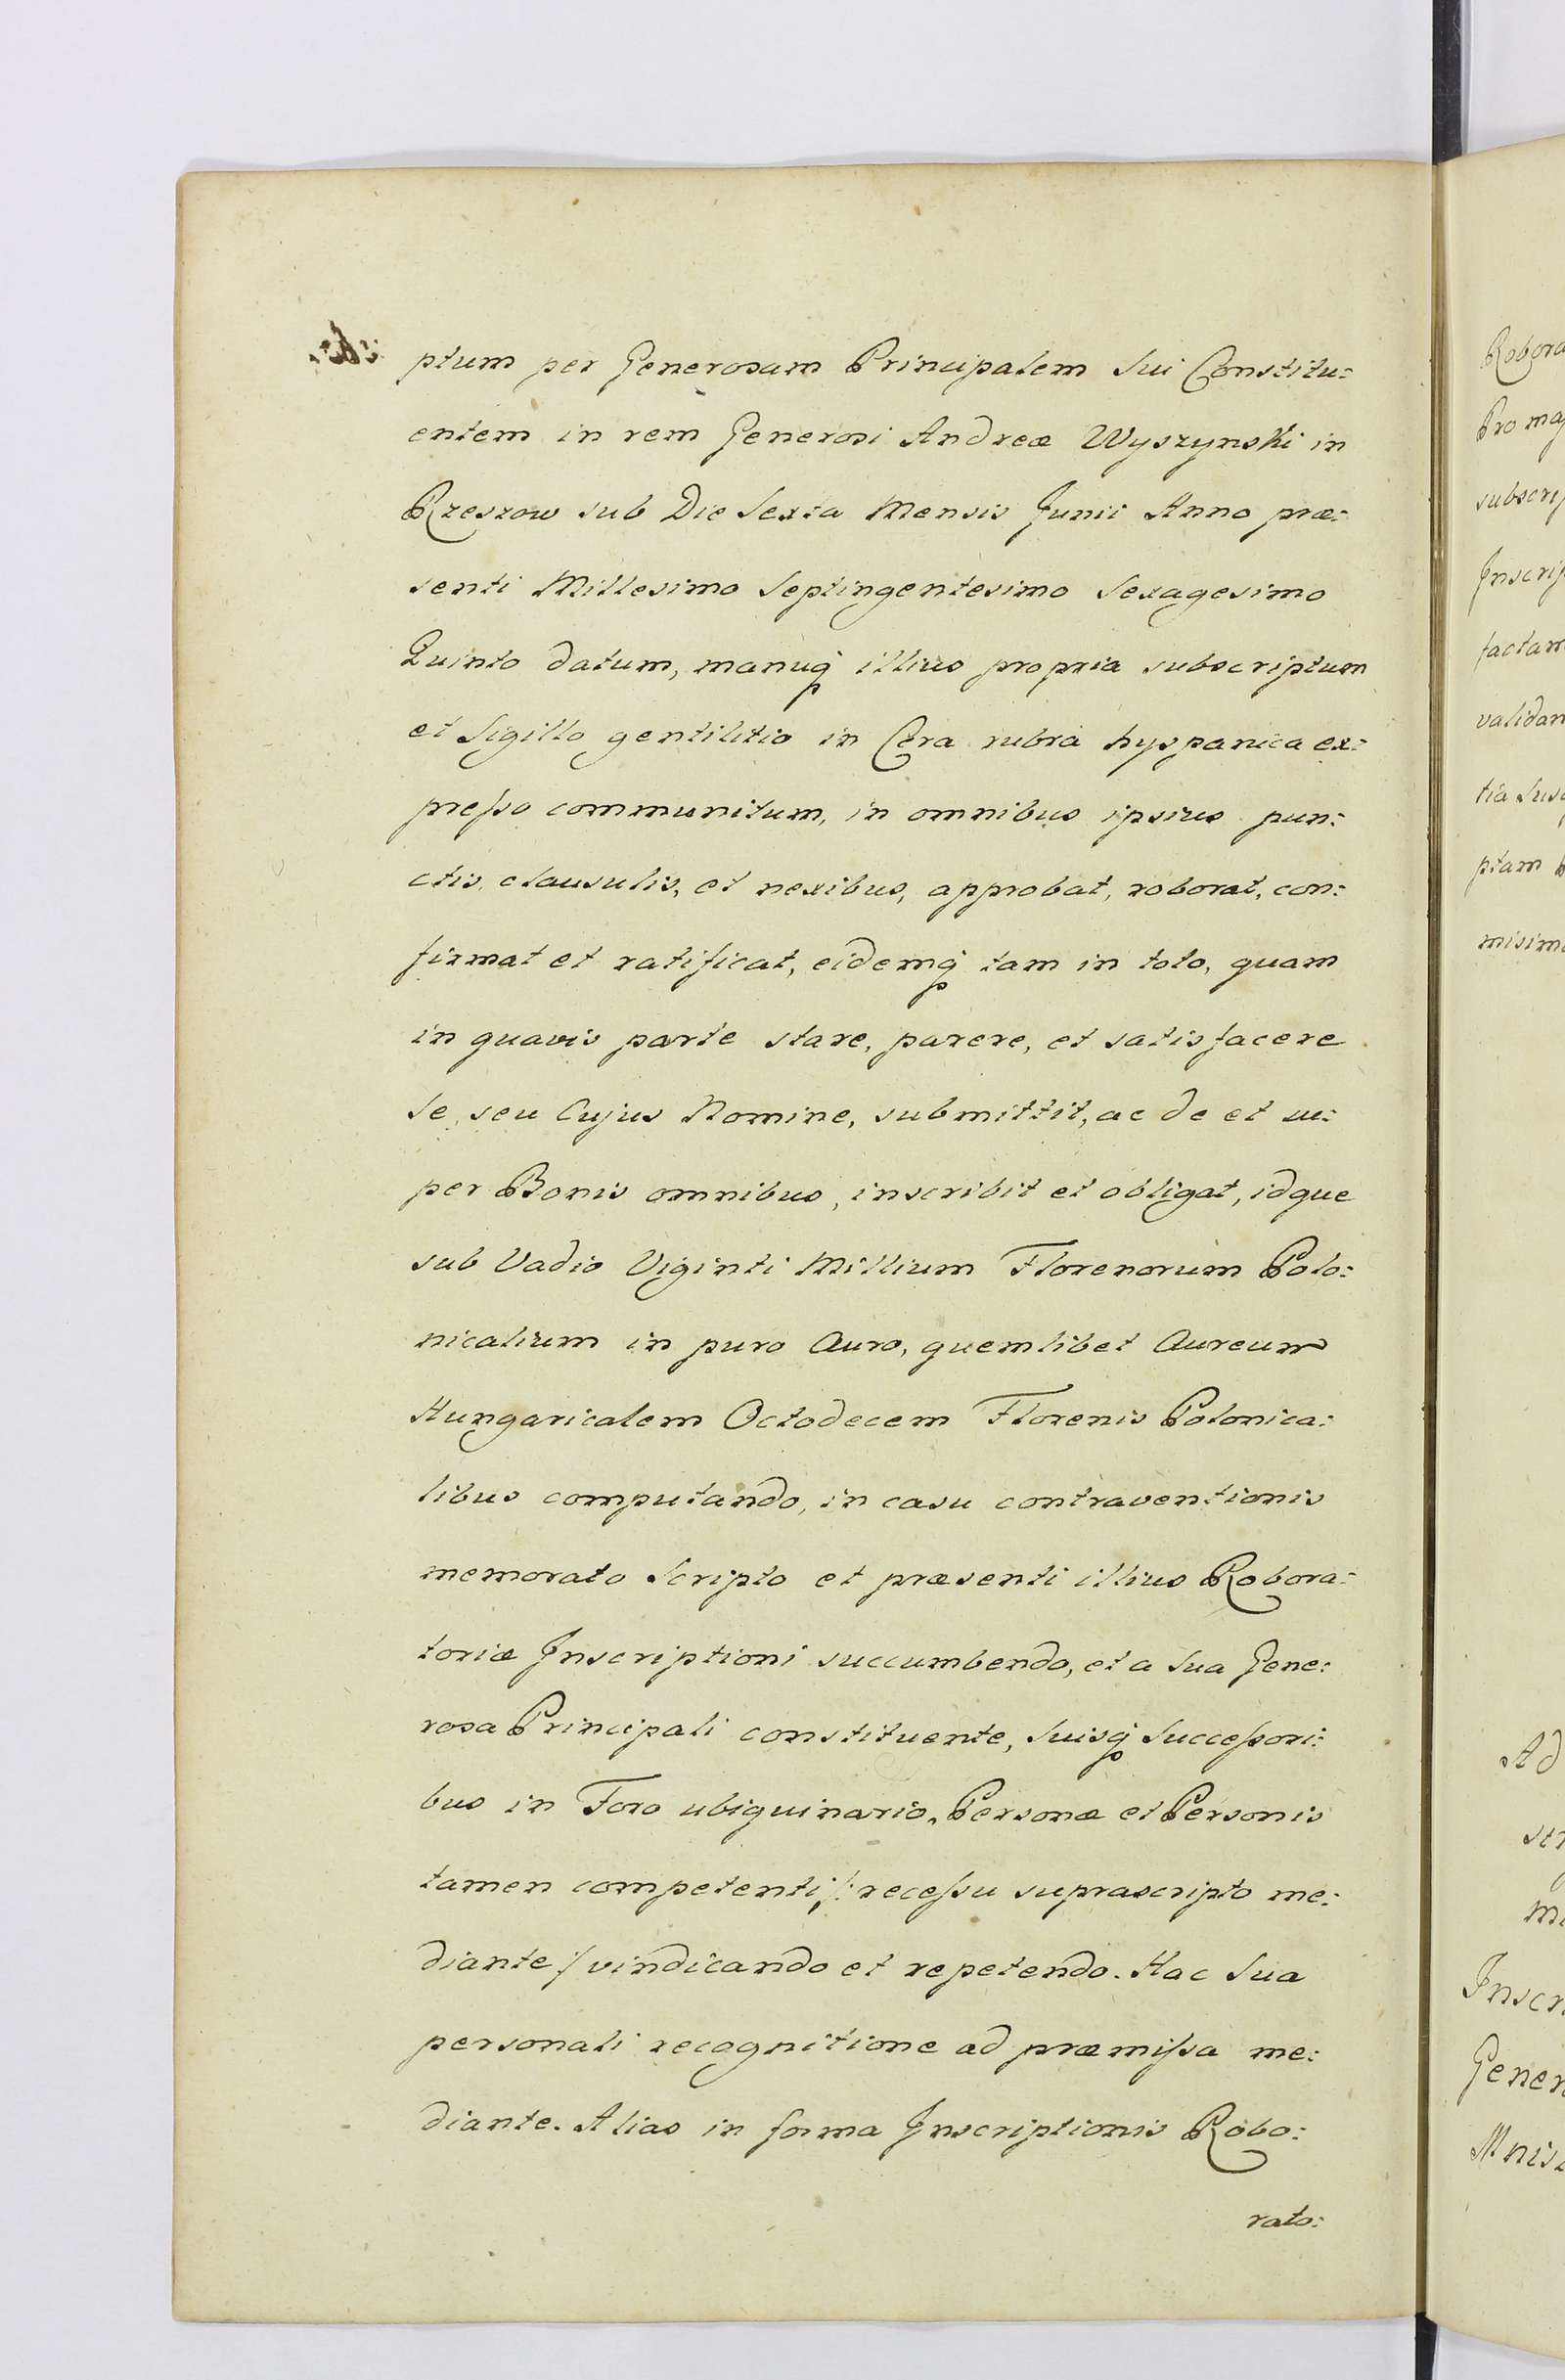 ptum per Generosam Principalem Sui Constitu:
entem in rem Generosi Andreæ Wyszynski in
Rzeszow sub Die Sexta Mensis Junii Anno præ:
senti Millesimo Septingentesimo Sexagesimo
Quinto datum, manuq illius propria subscriptum
et Sigillo gentilitio in Cera rubra hyspanica ex:
preſso communitum, in omnibus ipsius pun:
ctis, clausulis, et nexibus, approbat, roborat, con:
firmat et ratificat, eidemq tam in toto, quam
in quavis parte stare, parere, et satisfacere
se, seu Cujus Nomine, submittit, ac de et su:
per Bonis omnibus, inscribit et obligat, idque
sub Vadio Viginti Millium Florenorum Polo:
nicalium in puro Auro, quemlibet Aureum
Hungaricalem Octodecem Florenis Polonica:
libus computando, in casu contraventionis
memorato Scripto et præsenti illius Robora:
toriæ Inscriptioni succumbendo, et a Sua Gene:
rosa Principali constituente, Suisq Succeſsori:
bus in Foro ubiquinario, Personæ et Personis
tamen competenti /: receſsu suprascripto me:
diante :/ vindicando et repetendo. Hac Sua
personali recognitione ad præmiſsa me:
diante. Alias in forma Inscriptionis Robo:
rato:
Robora
Pro maj
subscrip
Inscrip
factam
validan
tia Susc
ptam
misimo
Ad
Inscri
Gener
Mnisz